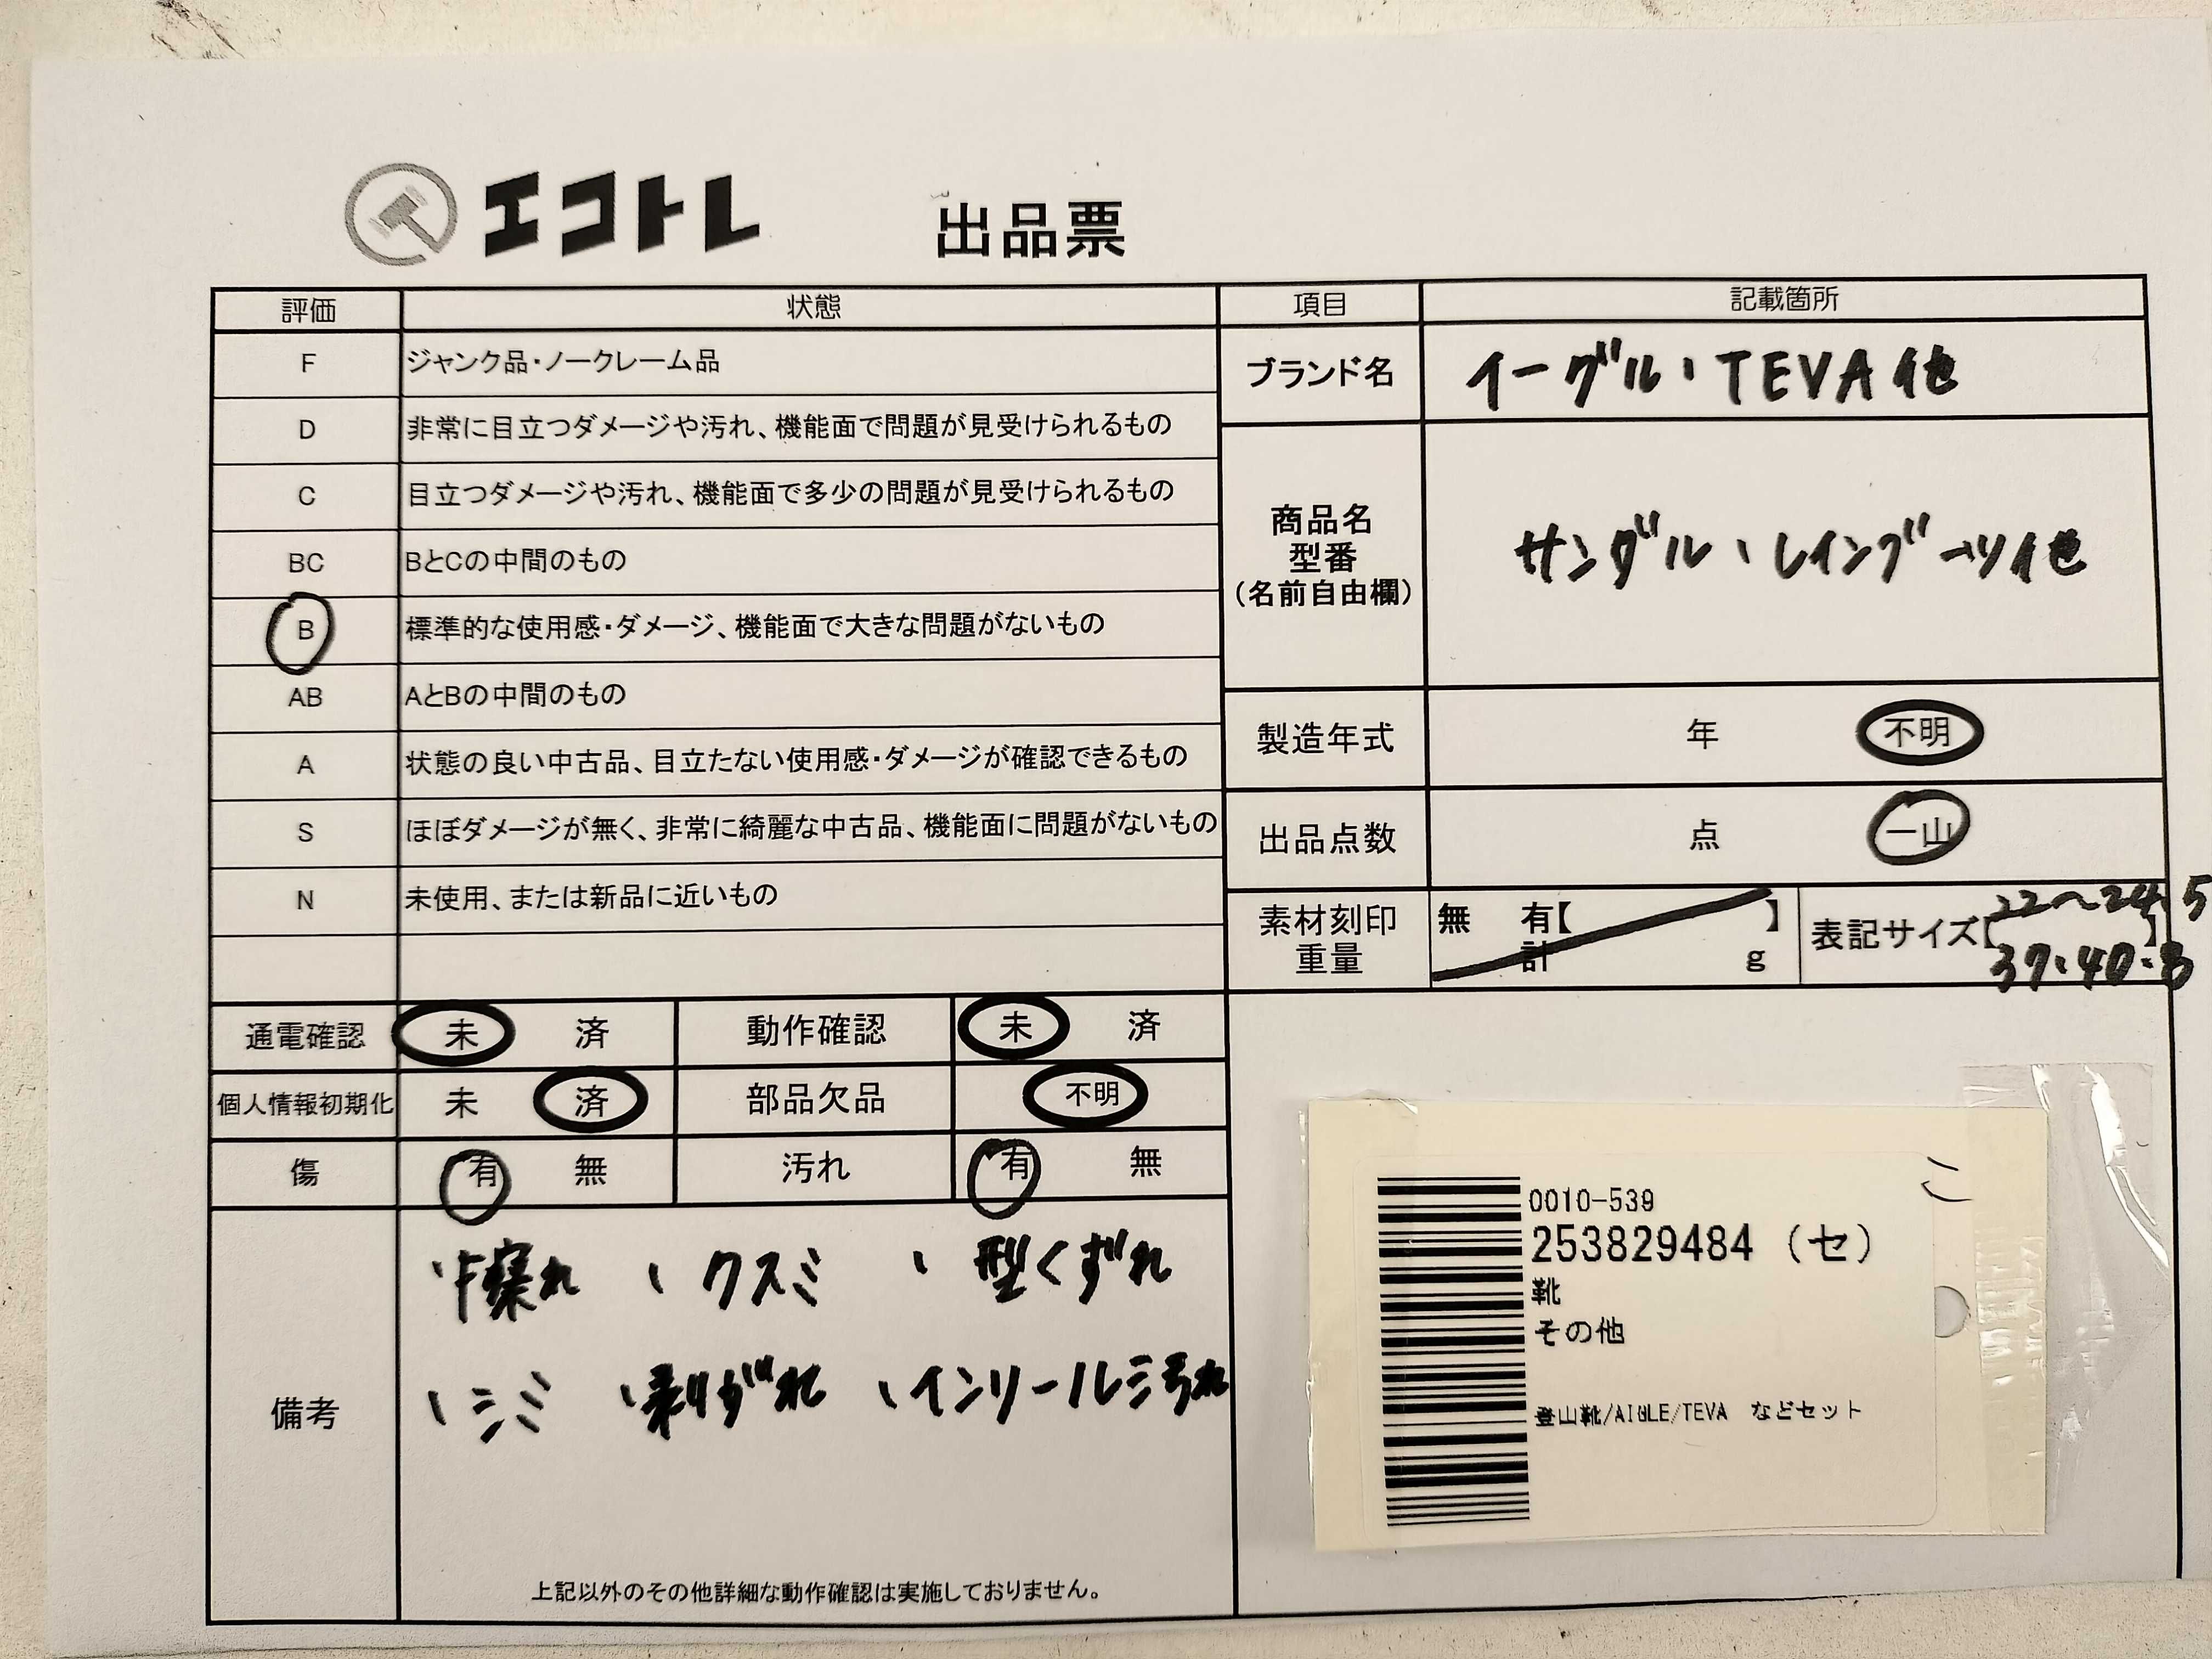 エコトレ 出品票
評価 状態
F ジャンク品・ノークレーム品
D 非常に目立つダメージや汚れ、機能面で問題が見受けられるもの
C 目立つダメージや汚れ、機能面で多少の問題が見受けられるもの
BC BとCの中間のもの
B 標準的な使用感・ダメージ、機能面で大きな問題がないもの
AB AとBの中間のもの
A 状態の良い中古品、目立たない使用感・ダメージが確認できるもの
S ほぼダメージが無く、非常に綺麗な中古品、機能面に問題がないもの
N 未使用、または新品に近いもの
項目 記載箇所
ブランド名 イーグル・TEVA他
商品名
型番
(名前自由欄)
サンダル、レインブーツ他
製造年式 年 不明
出品点数 点 一山
素材刻印 無 有【 】
重量 計 g
表記サイズ【 】
22〜24.5
37・40・8
通電確認 未 済 動作確認 未 済
個人情報初期化 未 済 部品欠品 不明
傷 有 無 汚れ 有 無
備考
・擦れ ・クスミ ・型くずれ
・シミ ・剥がれ ・インソール汚れ
上記以外のその他詳細な動作確認は実施しておりません。
0010-539
253829484 (セ)
靴
その他
登山靴/AIGLE/TEVA などセット